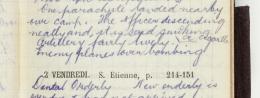 One parachute landed nearby
our camp. The officer descending
neatly and
artillery fairly lively. a cigarette
enemy planes over bombing
2 VENDREDI. S. Etienne, p. 214-151
Dental Orderly New orderly is